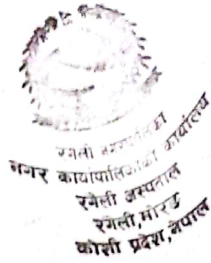 रंगेली नगरपालिका
नगर कार्यपालिकाको कार्यालय
रंगेली अस्पताल
रंगेली, मोरङ
कोशी प्रदेश, नेपाल